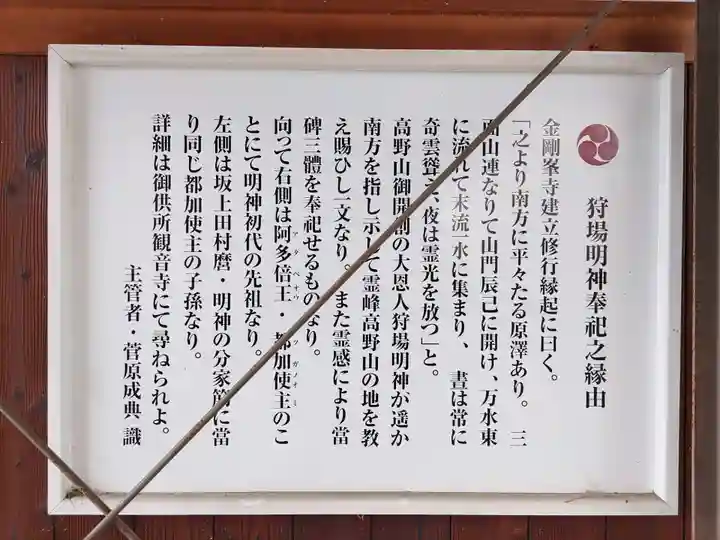 狩場明神奉祀之縁由
金剛峯寺建立修行縁起に曰く。
「之より南方に平々たる原澤あり。三
面山連なりて山門辰己に開け、万水東
に流れて末流一水に集まり、晝は常に
奇雲聳え、夜は霊光を放つ」と。
高野山御開創の大恩人狩場明神が遥か
南方を指し示して霊峰高野山の地を教
え賜ひし一文なり。また霊感により當
碑三體を奉祀せるものなり。
向って右側は阿多倍王・都加使主のこ
とにて明神初代の先祖なり。
左側は坂上田村麿・明神の分家筋に當
り同じ都加使主の子孫なり。
詳細は御供所観音寺にて尋ねられよ。
主管者・菅原成典 識